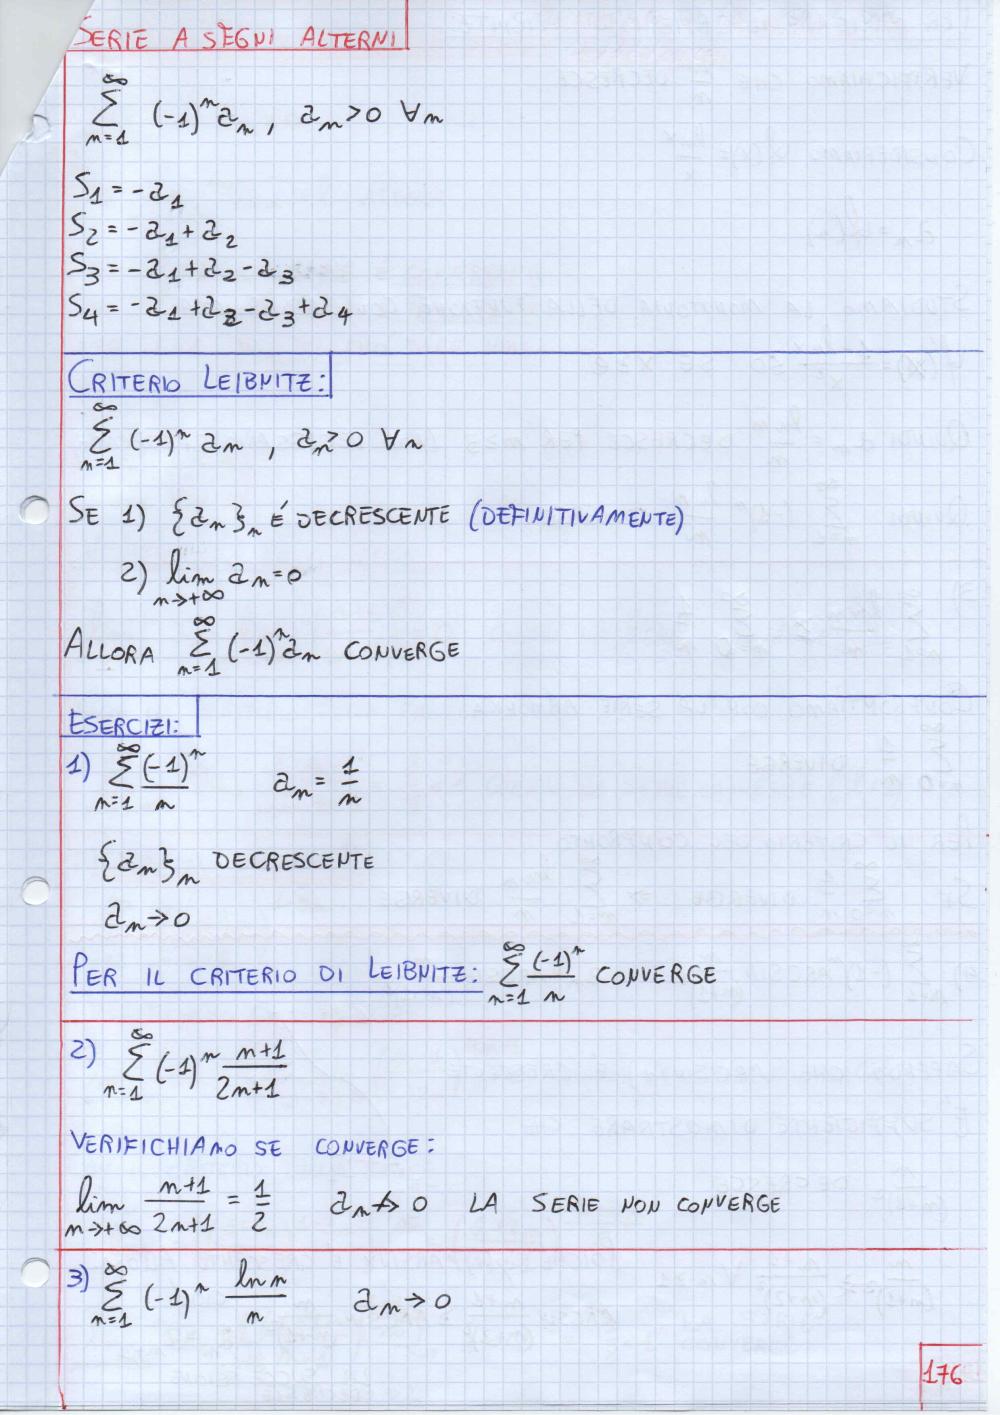 SERIE A SEGNI ALTERNI
∑_{n=1}^{∞} (-1)^n a_n , a_n > 0 ∀n
S_1 = -a_1
S_2 = -a_1 + a_2
S_3 = -a_1 + a_2 - a_3
S_4 = -a_1 + a_2 - a_3 + a_4
CRITERIO LEIBNITZ:
∑_{n=1}^{∞} (-1)^n a_n , a_n > 0 ∀n
SE 1) {a_n}_n É DECRESCENTE (DEFINITIVAMENTE)
2) lim_{n→+∞} a_n = 0
ALLORA ∑_{n=1}^{∞} (-1)^n a_n CONVERGE
ESERCIZI:
1) ∑_{n=1}^{∞} (-1)^n / n a_n = 1/n
{a_n}_n DECRESCENTE
a_n → 0
PER IL CRITERIO DI LEIBNITZ: ∑_{n=1}^{∞} (-1)^n / n CONVERGE
2) ∑_{n=1}^{∞} (-1)^n (n+1)/(2n+1)
VERIFICHIAMO SE CONVERGE:
lim_{n→+∞} (n+1)/(2n+1) = 1/2 a_n ↛ 0 LA SERIE NON CONVERGE
3) ∑_{n=1}^{∞} (-1)^n (ln n)/n a_n → 0
176